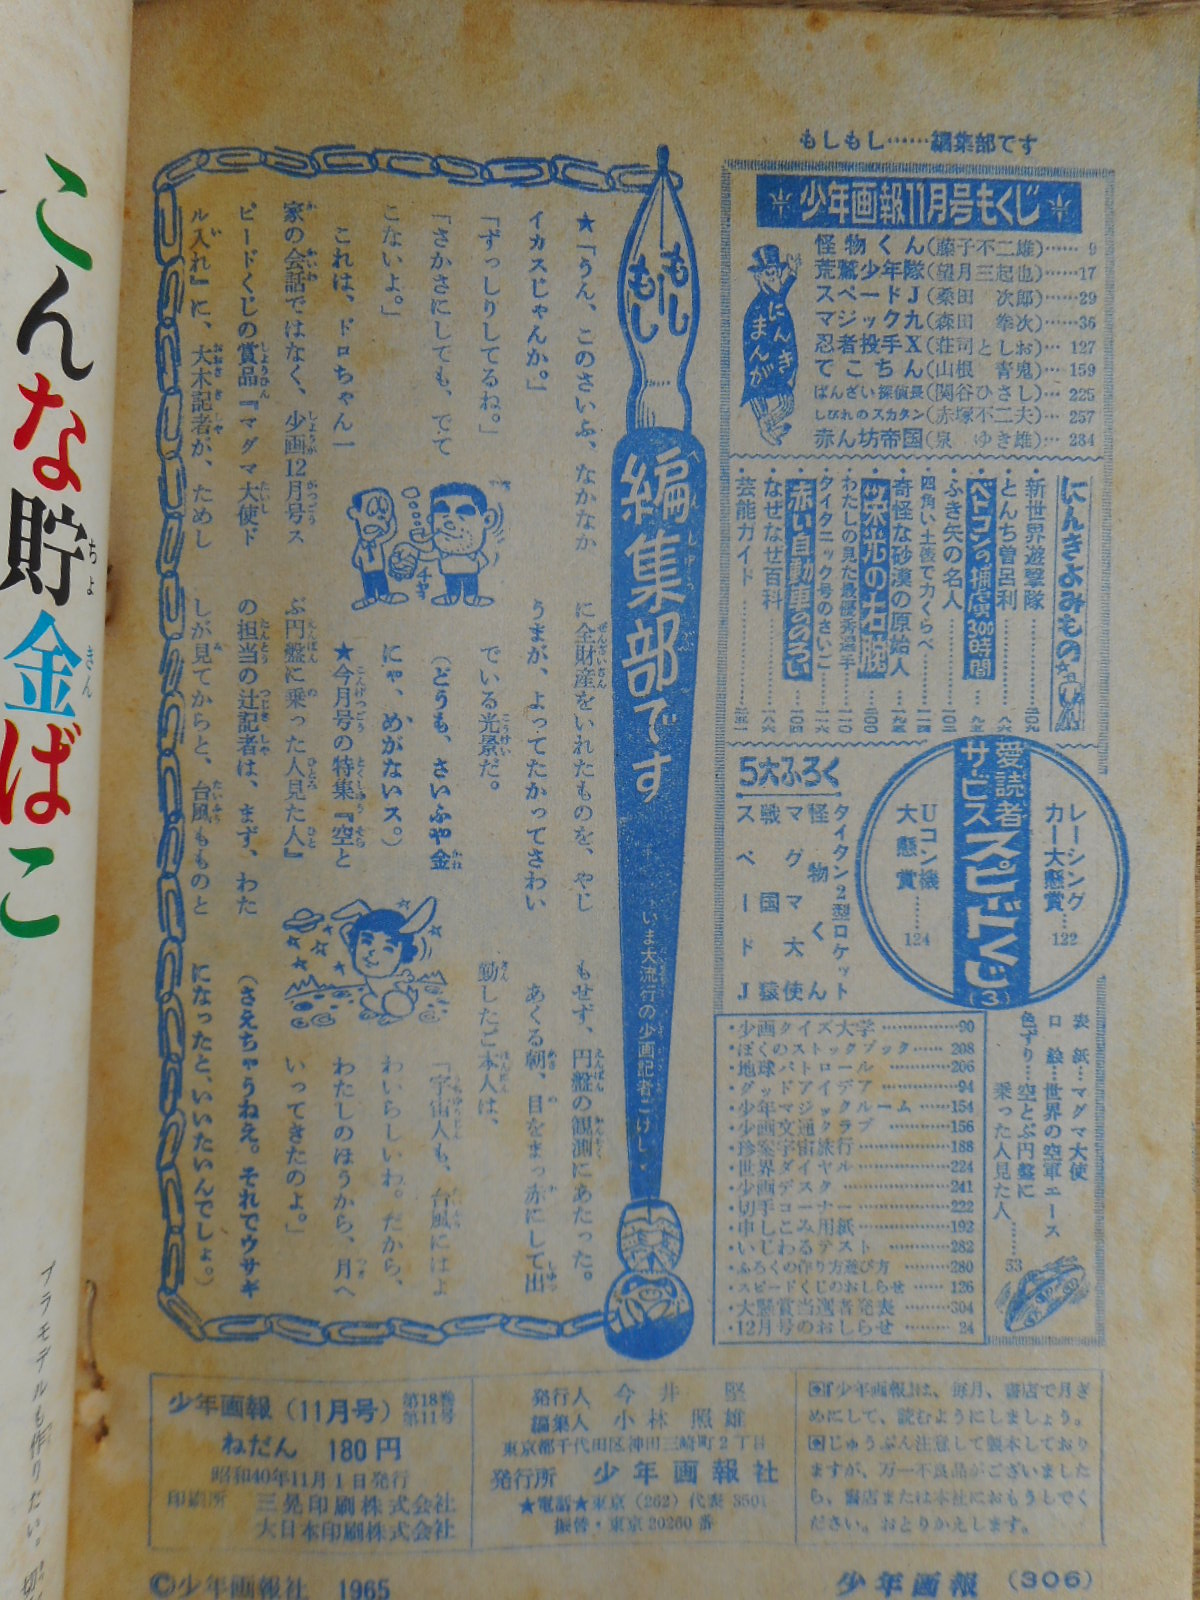 もしもし……編集部です
少年画報11月号もくじ
にんきまんが
怪物くん(藤子不二雄)……9
荒鷲少年隊(望月三起也)……17
スペードJ(桑田 次郎)……29
マジック九(森田 拳次)……36
忍者投手X(荘司としお)…127
でこちん(山根 青鬼)…159
ばんざい探偵長(関谷ひさし)…225
しびれのスカタン(赤塚不二夫)…257
赤ん坊帝国(泉 ゆき雄)…284
にんきよみもの
・新世界遊撃隊
・とんち曽呂利
ベトコンの捕虜300時間
・ふき矢の名人
・四角い土俵で力くらべ
・奇怪な砂漠の原始人
栄光の右腕
・わたしの見た最優秀選手
・タイタニック号のさいご
赤い自動車ののろい
・なぜなぜ百科
・芸能ガイド
愛読者サービス
スピードくじ(3)
レーシングカー大懸賞…122
Uコン機大懸賞……124
5大ふろく
タイタン2型ロケット
怪物くん
マグマ大使
戦国猿
スペードJ
表紙…マグマ大使
口絵…世界の空軍エース
色ずり…空とぶ円盤に
乗った人見た人……53
・少画クイズ大学……90
・ぼくのストックブック……208
・地球パトロール……206
・グッドアイデア……94
・少年マジックルーム……154
・少画文通クラブ……156
・珍案宇宙旅行……188
・世界ダイヤル……224
・少画デスター……241
・切手コーナー……222
・申しこみ用紙……192
・いじわるテスト……282
・ふろくの作り方遊び方……280
・スピードくじのおしらせ……126
・大懸賞当選者発表……304
・12月号のおしらせ……24
もしもし
編集部です
いま大流行の少画記者こけし
★「うん、このさいふ、なかなか
イカスじゃんか。」
「ずっしりしてるね。」
「さかさにしても、でて
こないよ。」
これは、ドロちゃん一
家の会話ではなく、少画12月号ス
ピードくじの賞品『マグマ大使ド
ル入れ』に、大木記者が、ためし
に全財産をいれたものを、やじ
うまが、よってたかってさわい
でいる光景だ。
(どうも、さいふや金
にゃ、めがないス。)
★今月号の特集『空と
ぶ円盤に乗った人見た人』
の担当の辻記者は、まず、わた
しが見てからと、台風もものと
もせず、円盤の観測にあたった。
あくる朝、目をまっ赤にして出
勤したご本人は、
「宇宙人も、台風にはよ
わいらしいわ。だから、
わたしのほうから、月へ
いってきたのよ。」
(さえちゃうねえ。それでウサギ
になったと、いいたいんでしょ。)
少年画報(11月号)第18巻第11号
ねだん 180円
昭和40年11月1日発行
印刷所 三晃印刷株式会社
大日本印刷株式会社
発行人 今井 堅
編集人 小林照雄
東京都千代田区神田三崎町2丁目
発行所 少年画報社
★電話★東京(262)代表3501
振替・東京20260番
『少年画報』は、毎月、書店で月ぎ
めにして、読むようにしましょう。
じゅうぶん注意して製本しており
ますが、万一不良品がございました
ら、書店または本社におもうしでく
ださい。おとりかえします。
©少年画報社 1965
少年画報 (306)
こんな貯金ばこ
プラモデルも作りたい。切